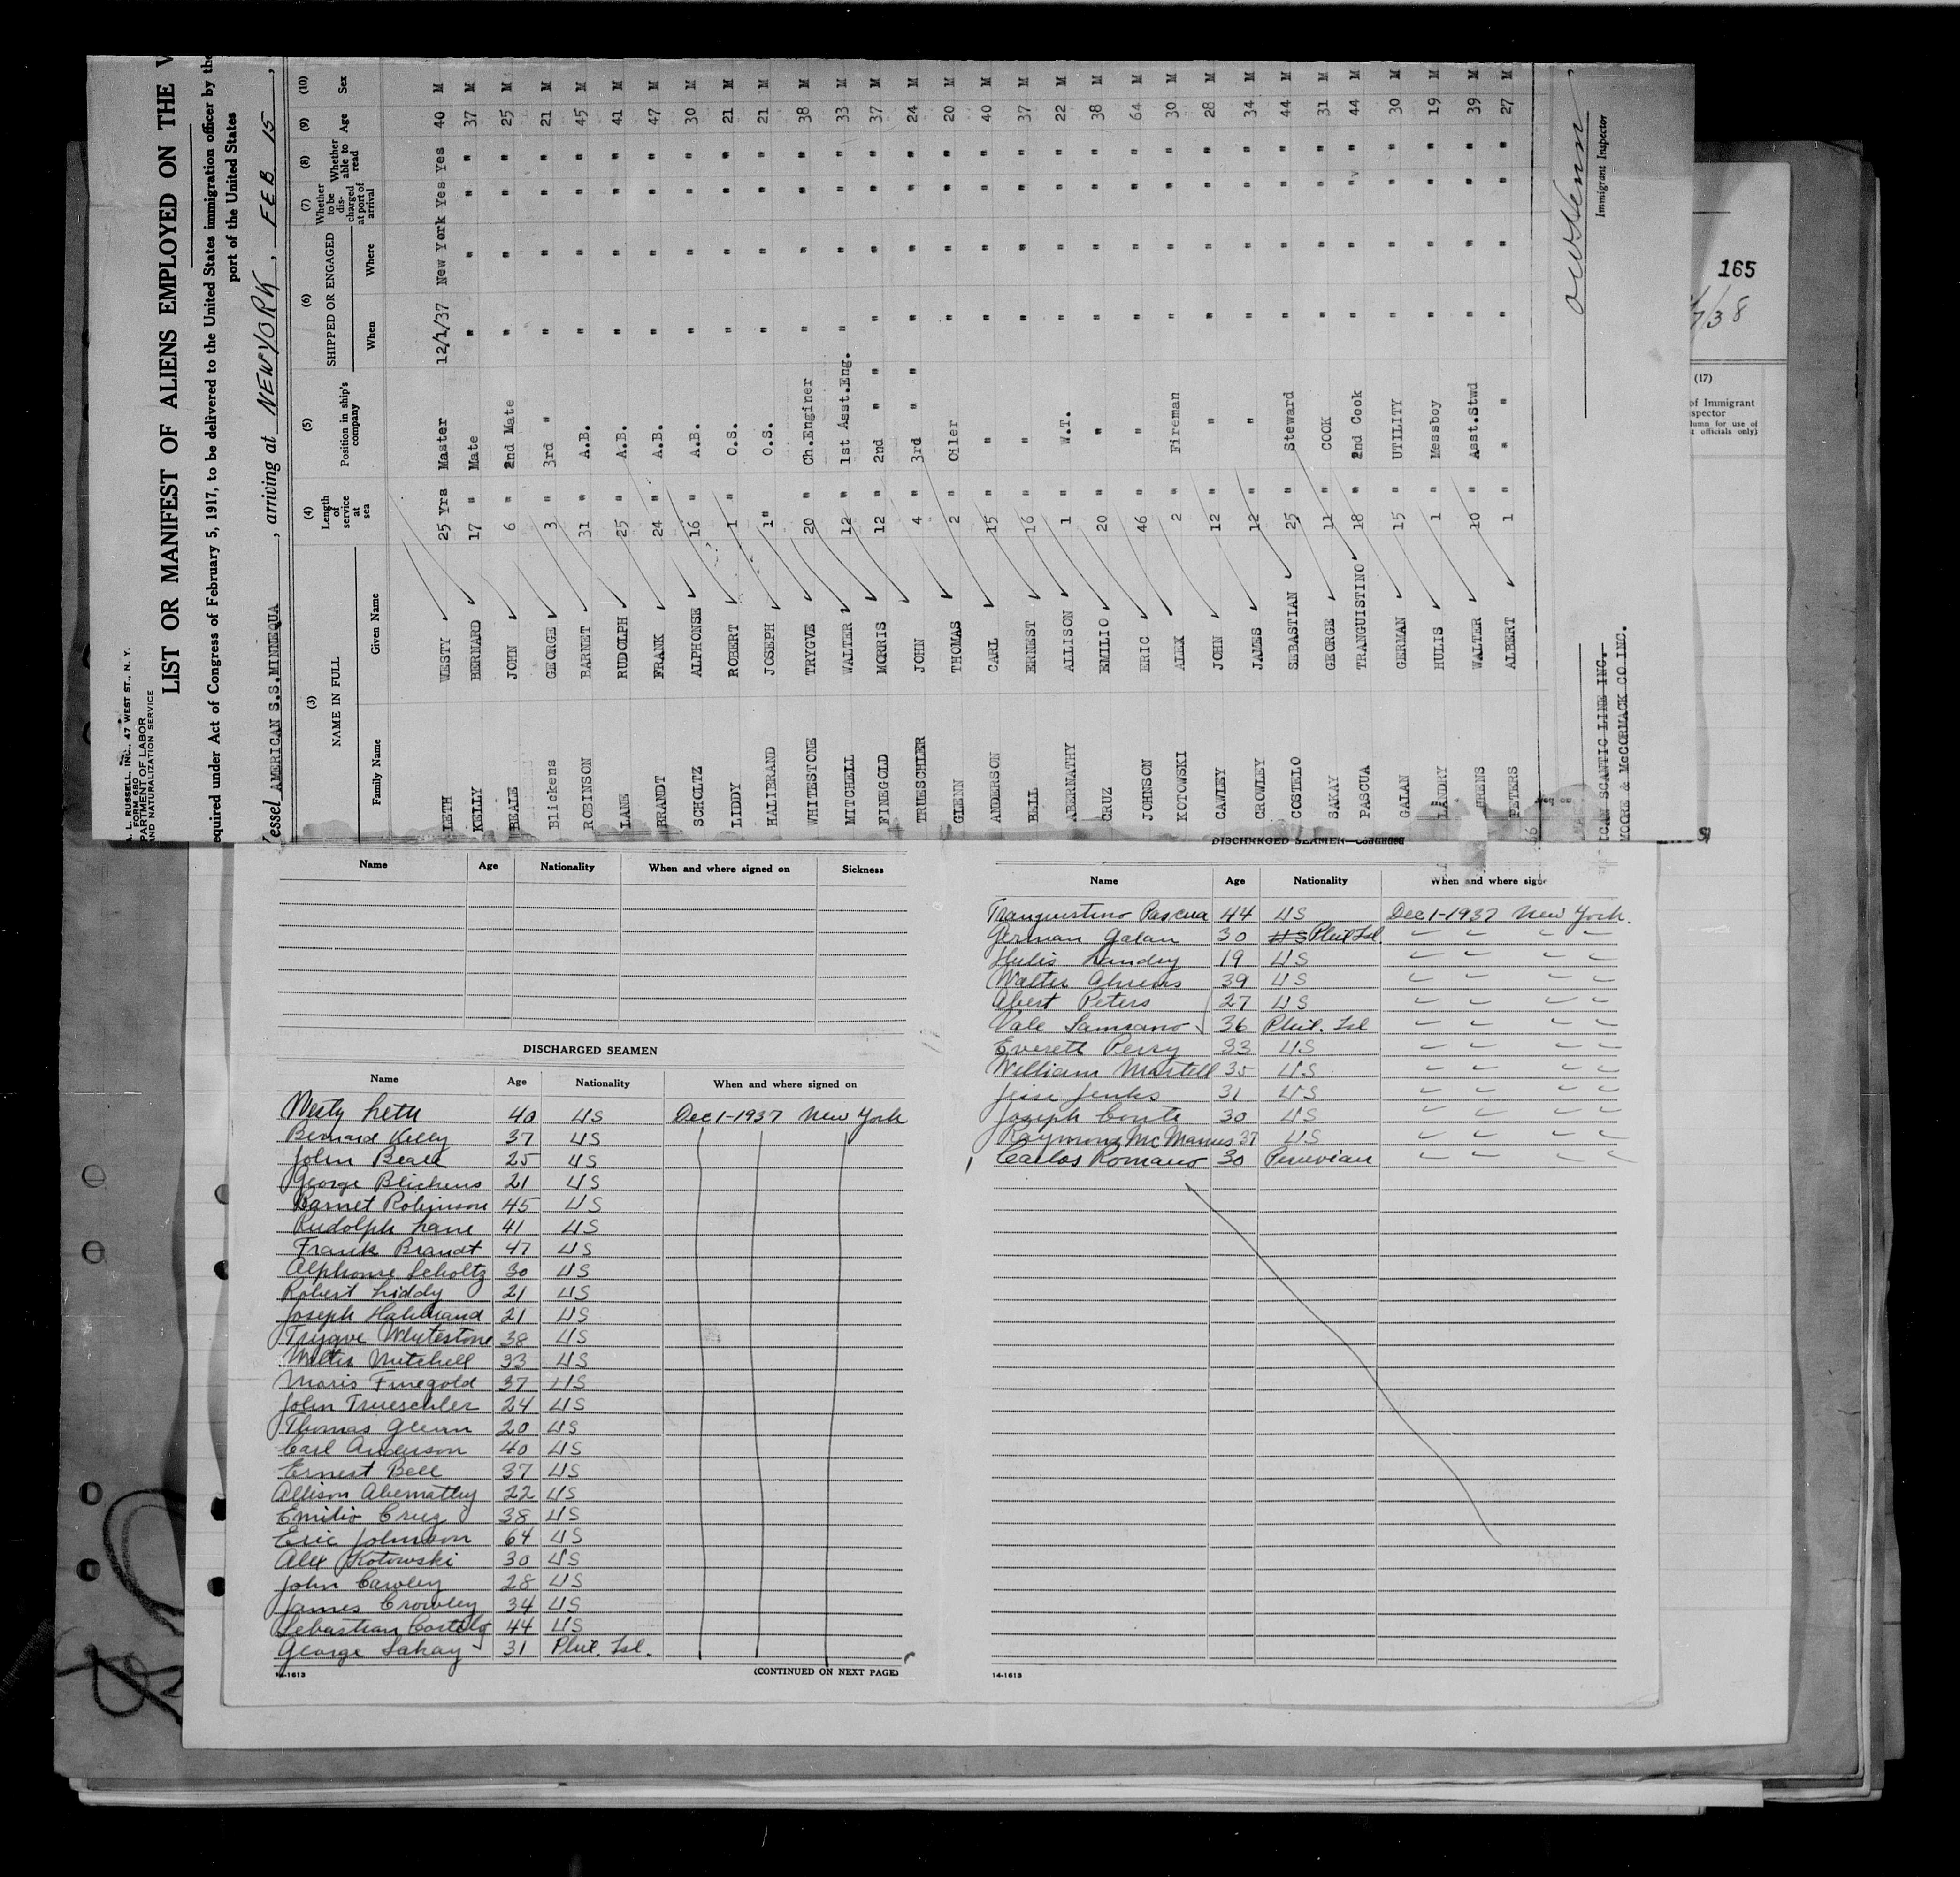 A. L. RUSSELL, INC., 47 WEST ST., N. Y.
FORM 680
PARTMENT OF LABOR
AND NATURALIZATION SERVICE
LIST OR MANIFEST OF ALIENS EMPLOYED ON THE V
equired under Act of Congress of February 5, 1917, to be delivered to the United States immigration officer by the
port of the United States
Vessel AMERICAN S.S.MINNEQUA, arriving at NEWYORK, FEB 15,
(3) (4) (5) (6) (7) (8) (9) (10)
NAME IN FULL Length of service at sea Position in ship's company SHIPPED OR ENGAGED Whether to be discharged at port of arrival Whether able to read Age Sex
Family Name Given Name When Where
LETH WESTY 25 Yrs Master 12/1/37 New York Yes Yes 40 M
KELLY BERNARD 17 " Mate " " " " 37 M
BEALE JOHN 6 " 2nd Mate " " " " 25 M
Blickens GEORGE 3 " 3rd " " " " " 21 M
ROBINSON BARNET 31 " A.B. " " " " 45 M
LANE RUDOLPH 25 " A.B. " " " " 41 M
BRANDT FRANK 24 " A.B. " " " " 47 M
SCHOLTZ ALPHONSE 16 " A.B. " " " " 30 M
LIDDY ROBERT 1 " O.S. " " " " 21 M
HALIBRAND JOSEPH 1" O.S. " " " " 21 M
WHITESTONE TRYGVE 20 " Ch.Enginer " " " " 38 M
MITCHELL WALTER 12 " 1st Asst.Eng. " " " " 33 M
FINEGOLD MORRIS 12 " 2nd " " " " " " 37 M
TRUESCHLER JOHN 4 " 3rd " " " " " " 24 M
GLENN THOMAS 2 " Oiler " " " " 20 M
ANDERSON CARL 15 " " " " " " 40 M
BELL ERNEST 16 " " " " " " 37 M
ABERNATHY ALLISON 1 " W.T. " " " " 22 M
CRUZ EMILIO 20 " " " " " " 38 M
JOHNSON ERIC 46 " " " " " " 64 M
KOTOWSKI ALEX 2 " Fireman " " " " 30 M
CAWLEY JOHN 12 " " " " " " 28 M
CROWLEY JAMES 12 " " " " " " 34 M
COSTELO SEBASTIAN 25 " Steward " " " " 44 M
SAKAY GEORGE 11 " COOK " " " " 31 M
PASCUA TRANGUISTINO 18 " 2nd Cook " " " " 44 M
GALAN GERMAN 15 " UTILITY " " " " 30 M
LANDRY HULIS 1 " Messboy " " " " 19 M
HRENS WALTER 10 " Asst.Stwd " " " " 39 M
PETERS ALBERT 1 " " " " " " " 27 M
ICAN SCANTIC LINE INC.
MOORE & McCORMACK CO INC.
Immigrant Inspector
165
7/38
(17)
of Immigrant
spector
lumn for use of
t officials only)
Name Age Nationality When and where signed on Sickness
DISCHARGED SEAMEN
Name Age Nationality When and where signed on
Westy Leth 40 US Dec 1-1937 New York
Bernard Kelly 37 US
John Beale 25 US
George Blickens 21 US
Barnet Robinson 45 US
Rudolph Lane 41 US
Frank Brandt 47 US
Alphonse Scholtz 30 US
Robert Liddy 21 US
Joseph Halibrand 21 US
Trygve Whitestone 38 US
Walter Mitchell 33 US
Moris Finegold 37 US
John Trueschler 24 US
Thomas Glenn 20 US
Carl Anderson 40 US
Ernest Bell 37 US
Allison Abernathy 22 US
Emilio Cruz 38 US
Eric Johnson 64 US
Alex Kotowski 30 US
John Cawley 28 US
James Crowley 34 US
Sebastian Costelo 44 US
George Sakay 31 Phil. Isl.
14-1613
(CONTINUED ON NEXT PAGE)
DISCHARGED SEAMEN—Continued
Name Age Nationality When and where signe
Tranquistino Pascua 44 US Dec 1-1937 New York.
German Galan 30 US Phil Isl " " " "
Hulis Landry 19 US " " " "
Walter Ahrens 39 US " " " "
Albert Peters 27 US " " " "
Vale Samsano 36 Phil. Isl " " " "
Everett Perry 33 US " " " "
William Martell 35 US " " " "
Jesse Jenks 31 US " " " "
Joseph Conte 30 US " " " "
Raymond McManus 37 US " " " "
Carlos Romano 30 Peruvian " " " "
14-1613